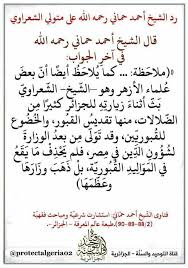 رد الشيخ أحمد حماني رحمه الله على متولي الشعراوي
قال الشيخ أحمد حماني رحمه الله
في آخر الجواب:
((ملاحظة: ... كما يُلاحَظُ أيضًا أنَّ بعضَ
علماء الأزهر وهو –الشيخ– الشعراوي
بثَّ أثناءَ زيارتِهِ للجزائر كثيرًا من
الضلالات، منها تقديس القبور، والخُضوع
للقُبوريّين، وقد تولّى من بعدُ الوزارةَ
لشؤون الدِّين في مصر، فلم يَحذِف ما يَقَعُ
في المواليدِ القُبوريّة، بل ذَهبَ وزارَها
وعظَّمها))
فتاوى الشيخ أحمد حمّاني: استشارات شرعية ومباحث فقهيّة
طبعة عالم المعرفة - الجزائر-.
قناة التوحيد والسنّة - الجزائرية
@protectalgeria02